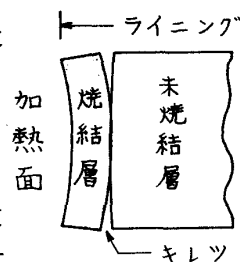 ライニング
加熱面
焼結層
未焼結層
キレツ